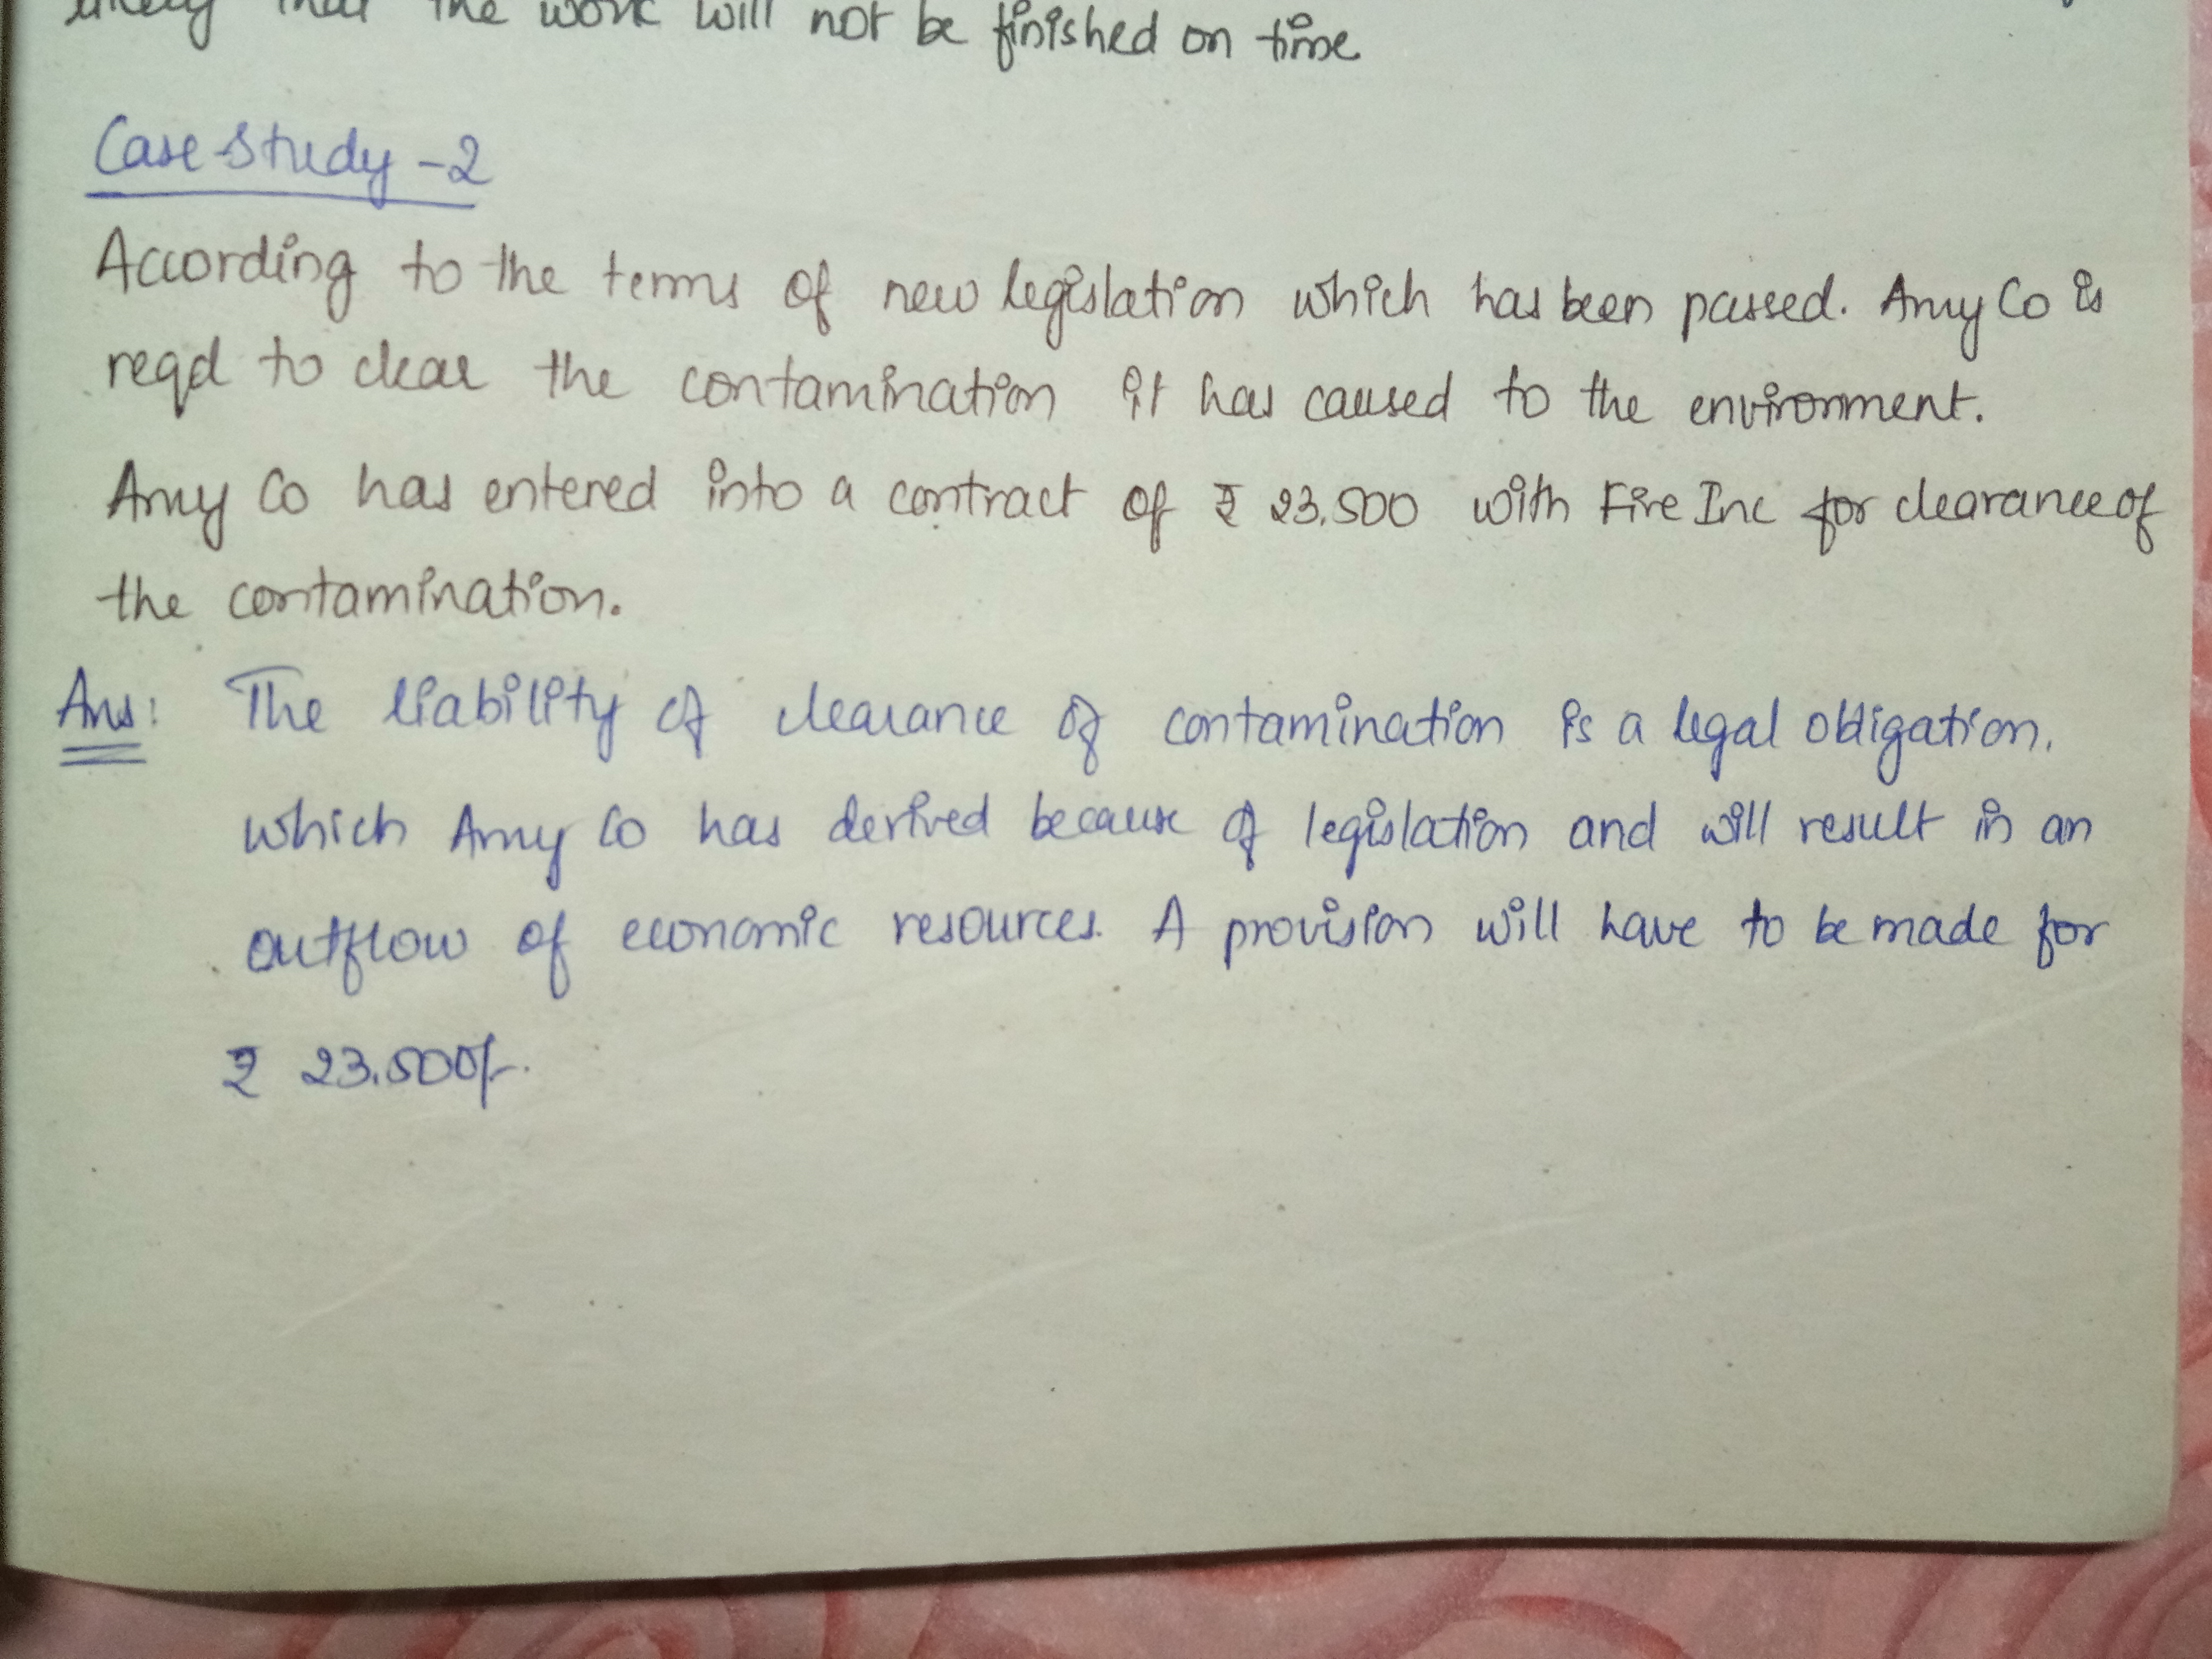 likely that the work will not be finished on time
Case Study -2
According to the terms of new legislation which has been passed. Amy Co is
reqd to clear the contamination it has caused to the environment.
Amy Co has entered into a contract of ₹ 23,500 with Fire Inc for clearance of
the contamination.
Ans: The liability of clearance of contamination is a legal obligation,
which Amy Co has derived because of legislation and will result in an
outflow of economic resources. A provision will have to be made for
₹ 23,500/-.